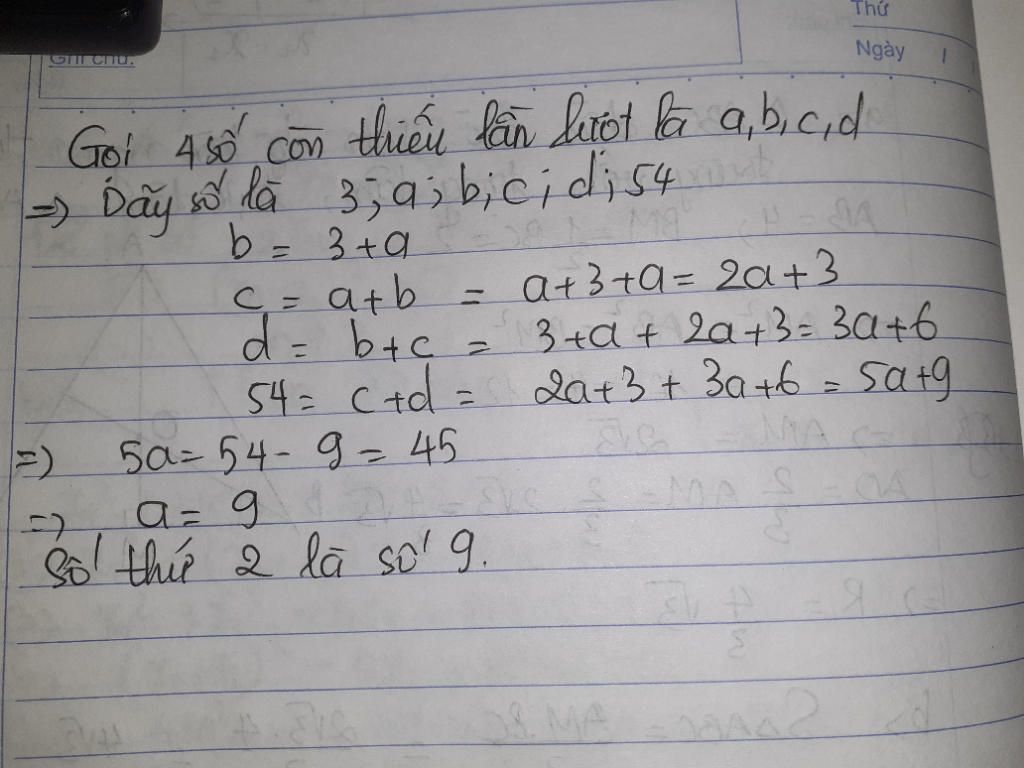 Thứ
Ghi chú:
Ngày
Gọi 4 số còn thiếu lần lượt là a, b, c, d
=> Dãy số là 3; a; b; c; d; 54
b = 3 + a
c = a + b = a + 3 + a = 2a + 3
d = b + c = 3 + a + 2a + 3 = 3a + 6
54 = c + d = 2a + 3 + 3a + 6 = 5a + 9
=> 5a = 54 - 9 = 45
=> a = 9
Số thứ 2 là số 9.